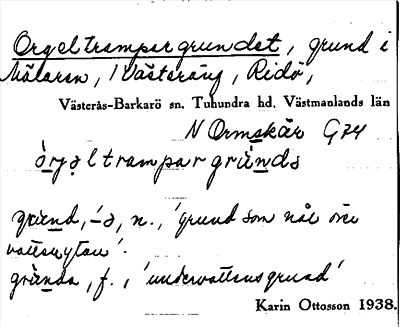 Orgeltrampargrundet, grund i
Mälaren, 1 Västeräng, Ridö,
Västerås-Barkarö sn. Tuhundra hd. Västmanlands län
N Ormskär G74
òrgeltrampargrùnda
grund, -ə, n., 'grund som når över
vattenytan'.
grunda, f., 'undervattensgrund'
Karin Ottosson 1938.